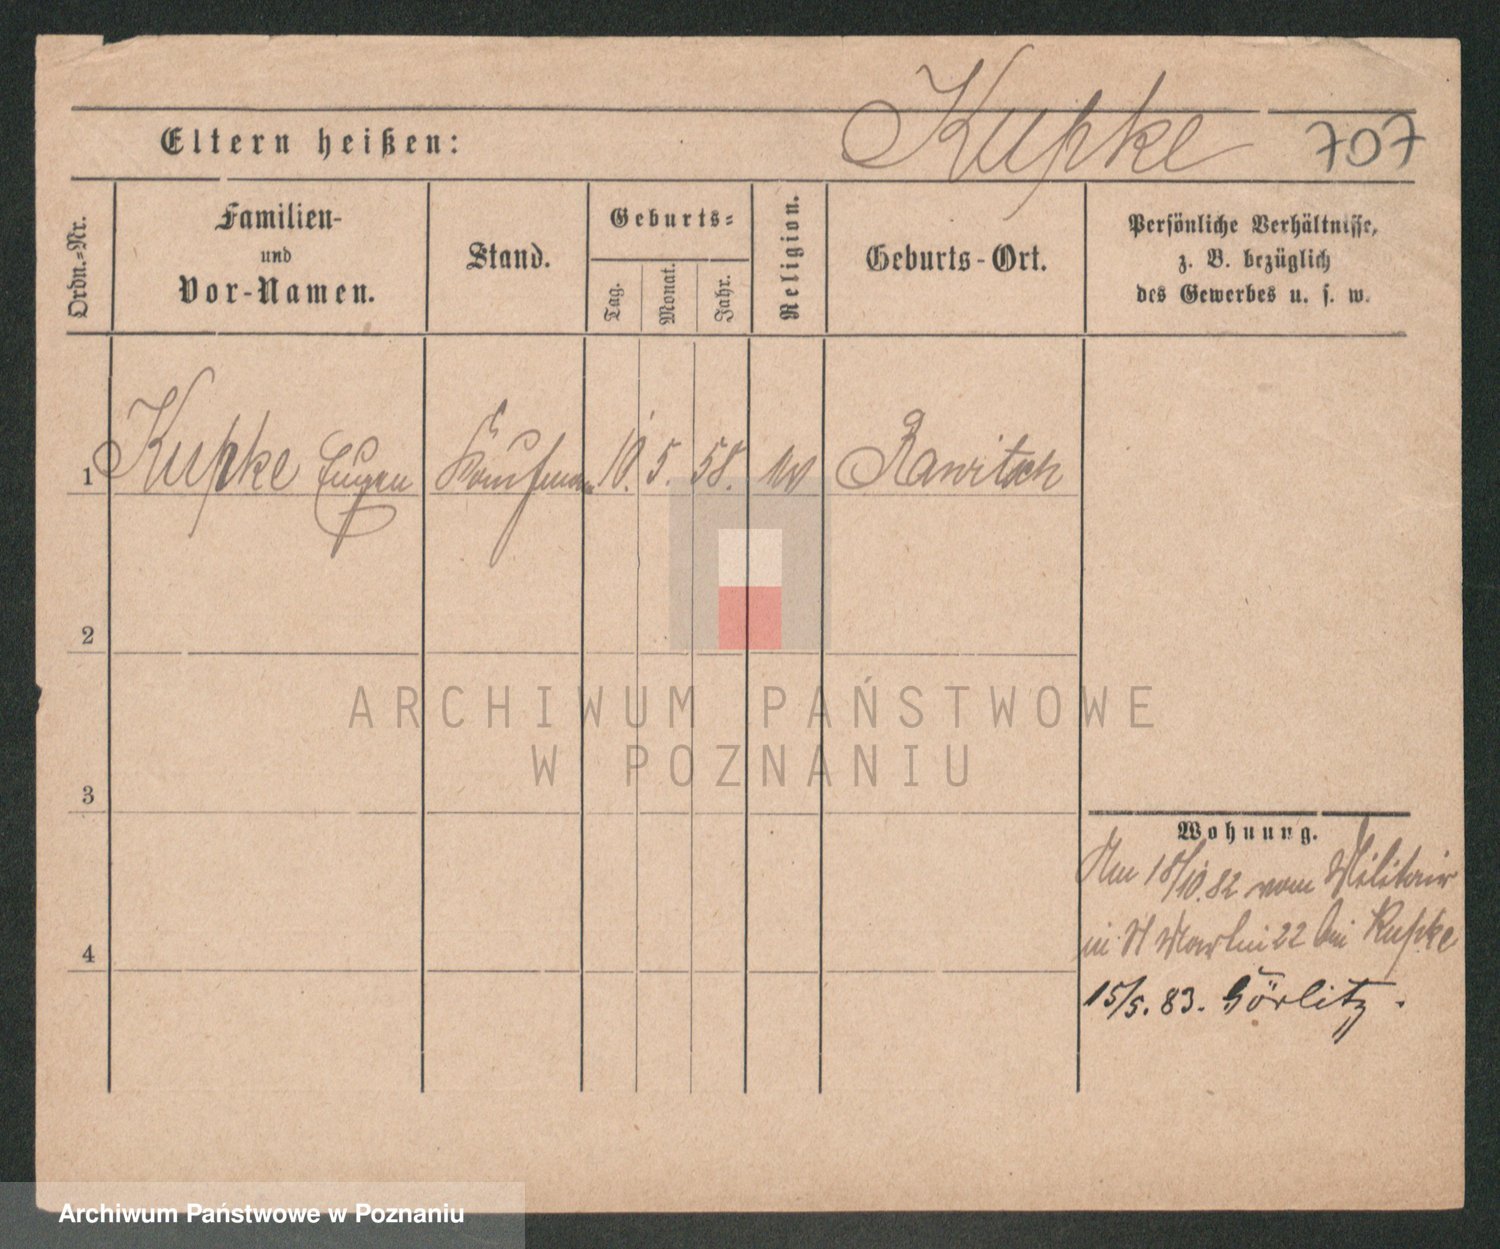 Kupke 707
Eltern heißen:
Ordn.-Nr.
Familien-
und
Vor-Namen.
Stand.
Geburts-
Tag.
Monat.
Jahr.
Religion.
Geburts-Ort.
Persönliche Verhältnisse,
z. B. bezüglich
des Gewerbes u. s. w.
1 Kupke Eugen Kaufmann 10. 5. 58. Rawitsch
2
3
4
ARCHIWUM PAŃSTWOWE
W POZNANIU
Wohnung.
Am 18/10.82 vom Militair
in St Martin 22 bei Kupke
15/5. 83. Görlitz.
Archiwum Państwowe w Poznaniu